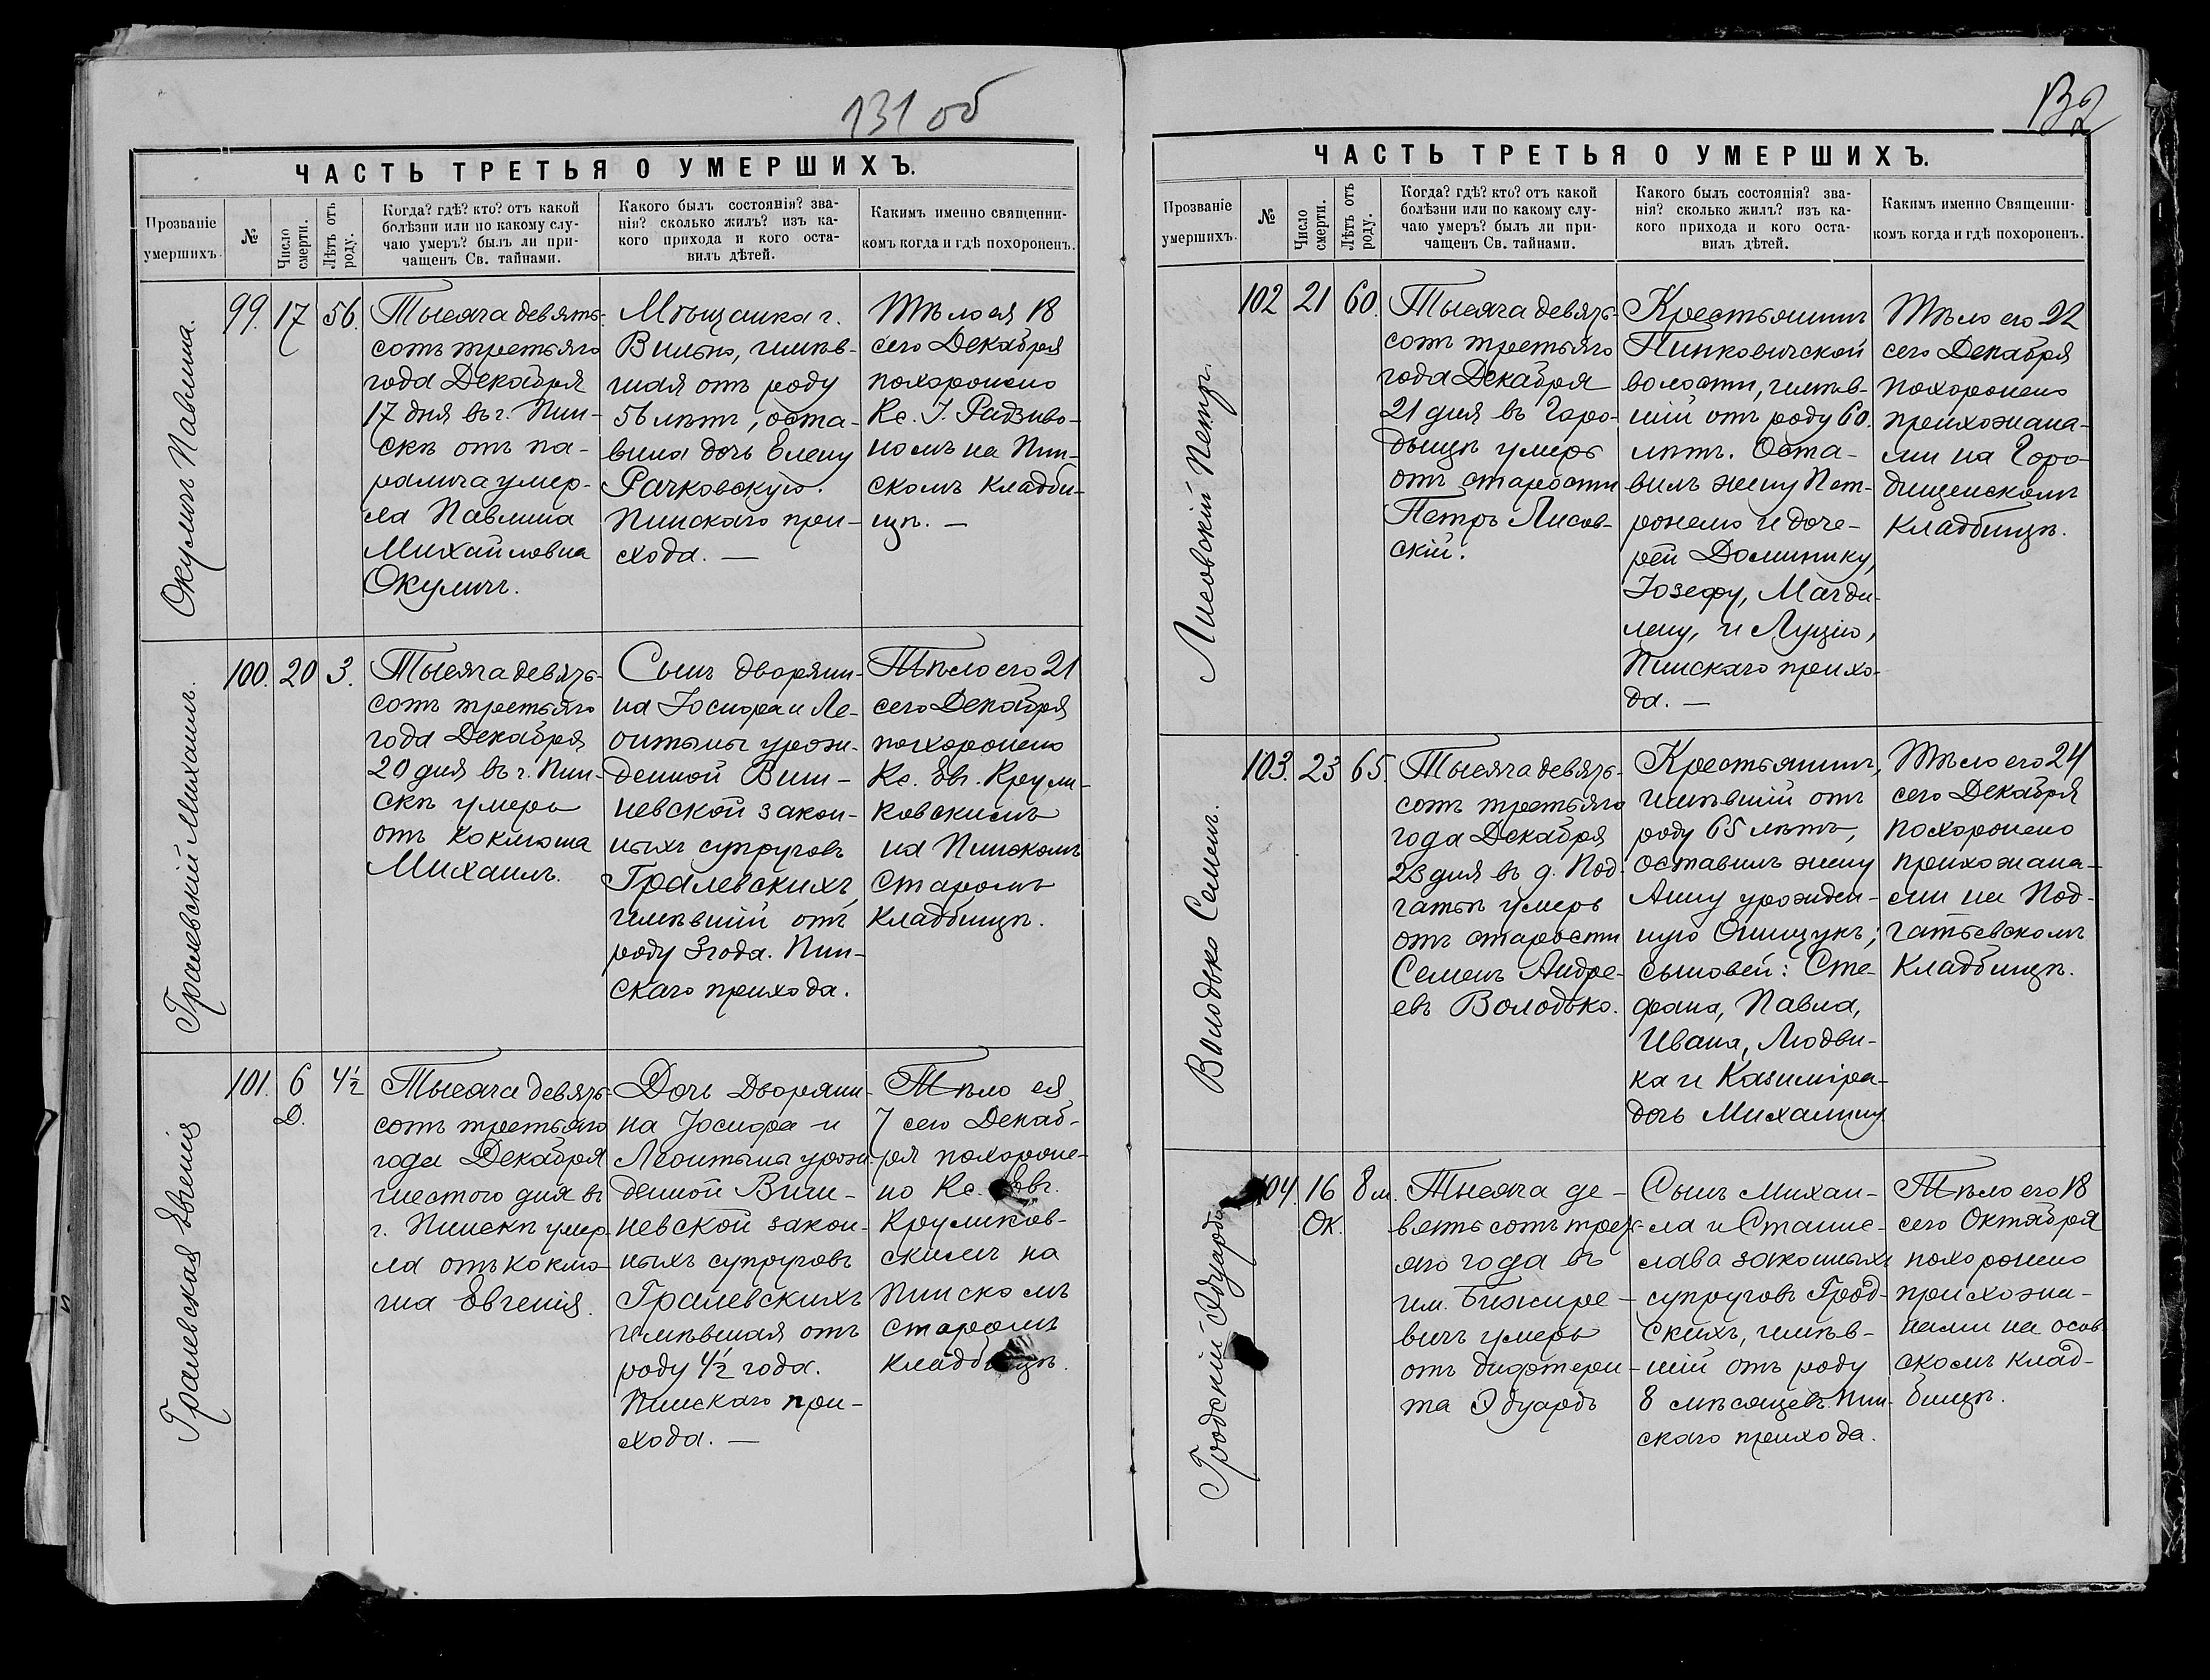 131 об
ЧАСТЬ ТРЕТЬЯ О УМЕРШИХЪ.
Прозваніе умершихъ.
№
Число смерти.
Лѣтъ отъ роду.
Когда? гдѣ? кто? отъ какой
болѣзни или по какому слу-
чаю умеръ? былъ ли при-
чащенъ Св. тайнами.
Какого былъ состоянія? зва-
нія? сколько жилъ? изъ ка-
кого прихода и кого оста-
вилъ дѣтей.
Какимъ именно священни-
комъ когда и гдѣ похороненъ.
Окуличъ Павлина.
99.
17
56.
Тысяча девять-
сотъ третьяго
года Декабря
17 дня въ г. Пин-
скѣ отъ па-
ралича умер-
ла Павлина
Михайловна
Окуличъ.
Мѣщанка г.
Вильно, имѣв-
шая отъ роду
56 лѣтъ, оста-
вила дочь Елену
Рачковскую.
Пинскаго при-
хода. —
Тѣло ея 18
сего Декабря
похоронено
Кс. І. Радзиво-
номъ на Пин-
скомъ кладби-
щѣ. —
Гралевскій Михаилъ.
100.
20
3.
Тысяча девять-
сотъ третьяго
года Декабря
20 дня въ г. Пин-
скѣ умеръ
отъ коклюша
Михаилъ.
Сынъ дворяни-
на Іосифа и Ле-
онтыны урож-
денной Виш-
невской закон-
ныхъ супруговъ
Гралевскихъ,
имѣвшій отъ
роду 3 года. Пин-
скаго прихода.
Тѣло его 21
сего Декабря
похоронено
Кс. Евг. Крули-
ковскимъ
на Пинскомъ
старомъ
кладбищѣ.
Гралевская Евгенія
101.
6
Д.
4½
Тысяча девять-
сотъ третьяго
года Декабря
шестого дня въ
г. Пинскѣ умер-
ла отъ коклю-
ша Евгенія.
Дочь Дворяни-
на Іосифа и
Леонтыны урож-
денной Виш-
невской закон-
ныхъ супруговъ
Гралевскихъ
имѣвшая отъ
роду 4½ года.
Пинскаго при-
хода. —
Тѣло ея
7 сего Декаб-
ря похороне-
но Кс. Евг.
Круликов-
скимъ на
Пинскомъ
старомъ
кладбищѣ.
132
ЧАСТЬ ТРЕТЬЯ О УМЕРШИХЪ.
Прозваніе умершихъ.
№
Число смерти.
Лѣтъ отъ роду.
Когда? гдѣ? кто? отъ какой
болѣзни или по какому слу-
чаю умеръ? былъ ли при-
чащенъ Св. тайнами.
Какого былъ состоянія? зва-
нія? сколько жилъ? изъ ка-
кого прихода и кого оста-
вилъ дѣтей.
Какимъ именно Священни-
комъ когда и гдѣ похороненъ.
Лисовскій Петръ.
102
21
60.
Тысяча девять-
сотъ третьяго
года Декабря
21 дня въ Горо-
дыщѣ умеръ
отъ старости
Петръ Лисов-
скій.
Крестьянинъ
Пинковичской
волости, имѣв-
шій отъ роду 60.
лѣтъ. Оста-
вилъ жену Пет-
ронелю и доче-
рей Доминику,
Іозефу, Магда-
лену, и Луцію,
Пинскаго прихо-
да. —
Тѣло его 22
сего Декабря
похоронено
прихожана-
ми на Горо-
дищенскомъ
кладбищѣ.
Володько Семенъ.
103.
23
65
Тысяча девять-
сотъ третьяго
года Декабря
23 дня въ д. Под-
гатьѣ умеръ
отъ старости
Семенъ Андре-
евъ Володько.
Крестьянинъ,
имѣвшій отъ
роду 65 лѣтъ,
оставилъ жену
Анну урожден-
ную Онищукъ;
сыновей: Сте-
фана, Павла,
Ивана, Людви-
ка и Казиміра-
дочь Михалину
Тѣло его 24
сего Декабря
похоронено
прихожана-
ми на Под-
гатьевскомъ
кладбищѣ.
Гродскій Эдуардъ
104.
16
Ок.
8 м.
Тысяча де-
вятьсотъ треть-
яго года въ
им. Бижире-
вичъ умеръ
отъ дифтери-
та Эдуардъ
Сынъ Михаи-
ла и Станис-
лава законныхъ
супруговъ Грод-
скихъ, имѣв-
шій отъ роду
8 мѣсяцевъ. Пин-
скаго прихода.
Тѣло его 18
сего Октября
похоронено
прихожа-
нами на осов-
скомъ клад-
бищѣ.